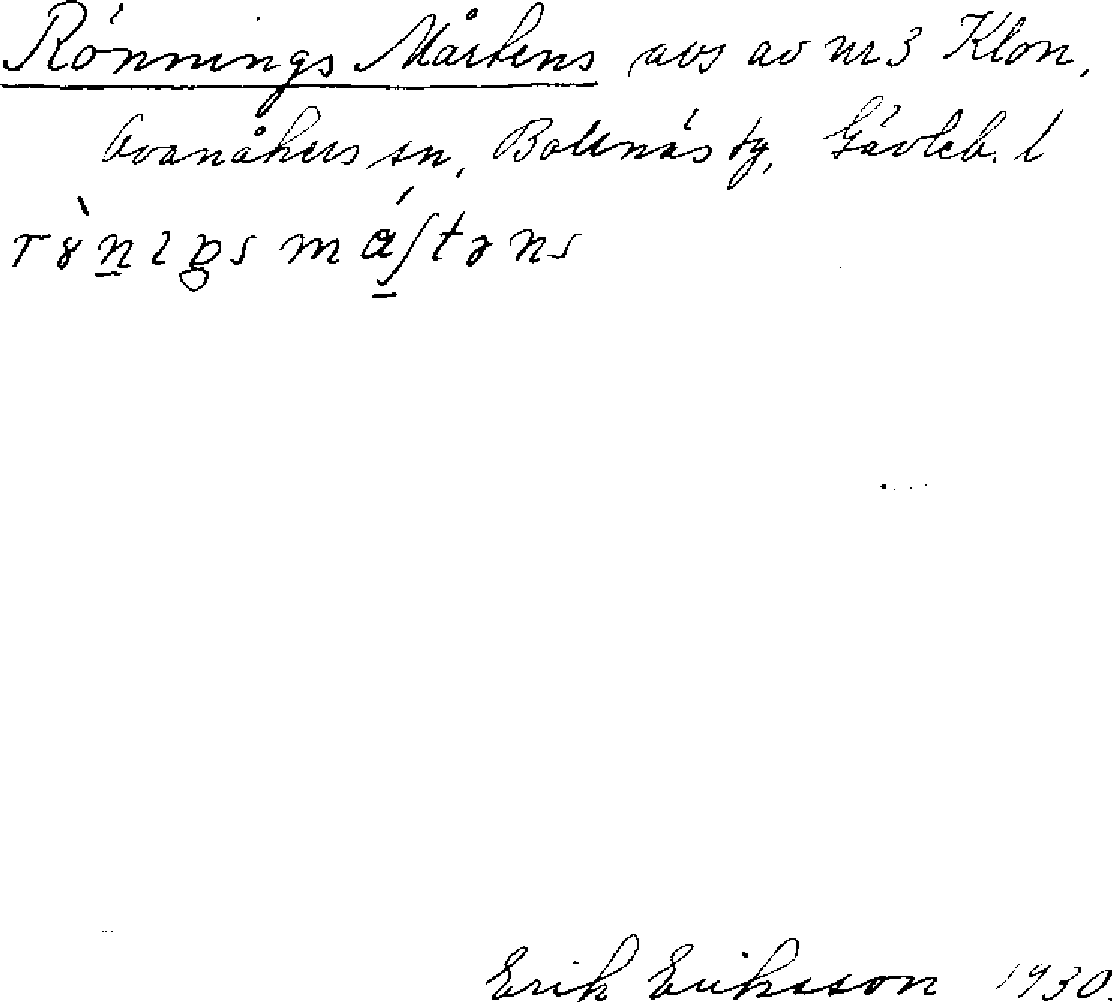 Rönnings Mårtens avs av nr 3 Klon,
Ovanåkers sn, Bollnäs tg, Gävleb. l
Erik Eriksson 1930.